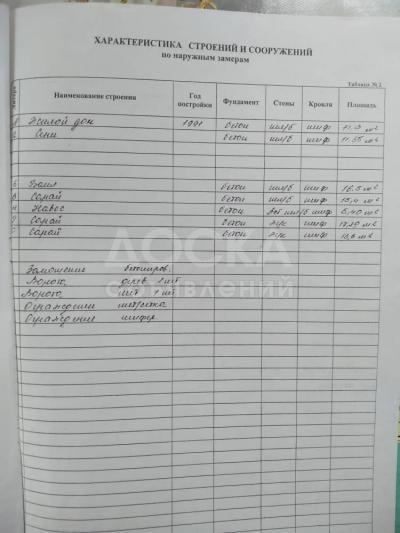 ХАРАКТЕРИСТИКА СТРОЕНИЙ И СООРУЖЕНИЙ
по наружным замерам
Таблица № 2
Литера Наименование строения Год постройки Фундамент Стены Кровля Площадь
Жилой дом 1991 бетон шл/б шиф
Сени бетон шл/б шиф 11.55 м2
Баня бетон шл/б шиф 16.5 м2
Сарай бетон шл/б шиф 15,4 м2
Навес бетон шл/б шиф 5,40 м2
Сарай бетон шиф
Сарай бетон шиф
Замощение бетониров.
Ворота дерев. 1 шт
Ворота мет 1 шт
Ограждение
Ограждение шифер
ДОСКА
ОБЪЯВЛЕНИЙ